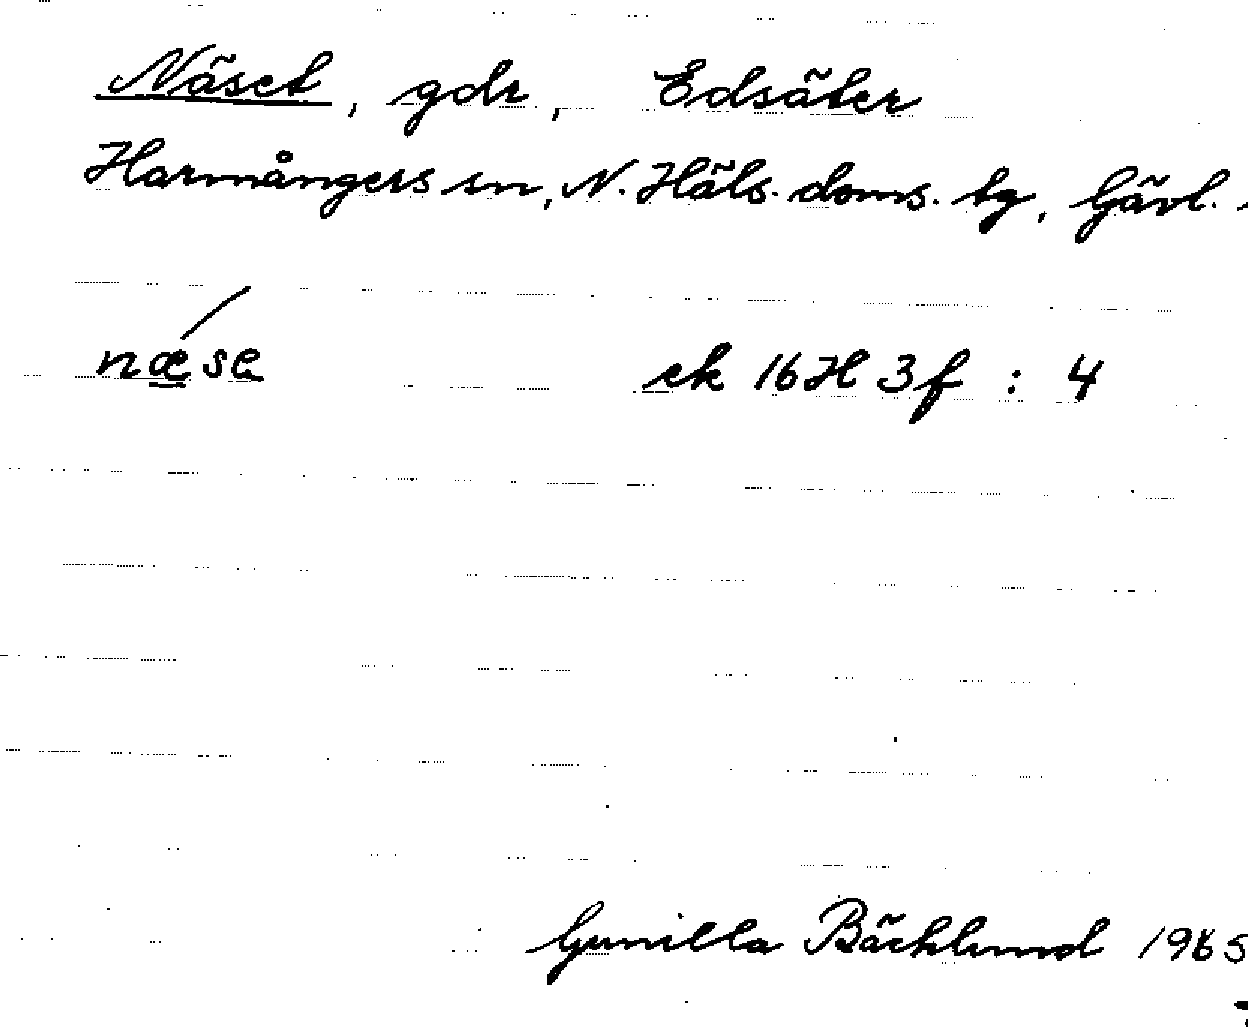 Näset, gdr, Edsäter
Harmångers sn, N. Häls. doms. tg, Gävl.
næse ek 16H 3f : 4
Gunilla Bäcklund 1965